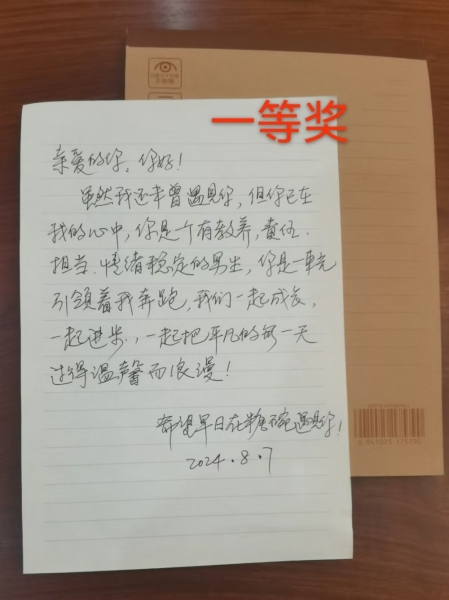 一等奖
亲爱的你，你好！
虽然我还未曾遇见你，但你已在
我的心中，你是个有教养，责任．
担当．情绪稳定的男生，你是一束光
引领着我奔跑，我们一起成长，
一起进步．，一起把平凡的每一天
过得温馨而浪漫！
希望早日在糖碗遇见你！
2024.8.7